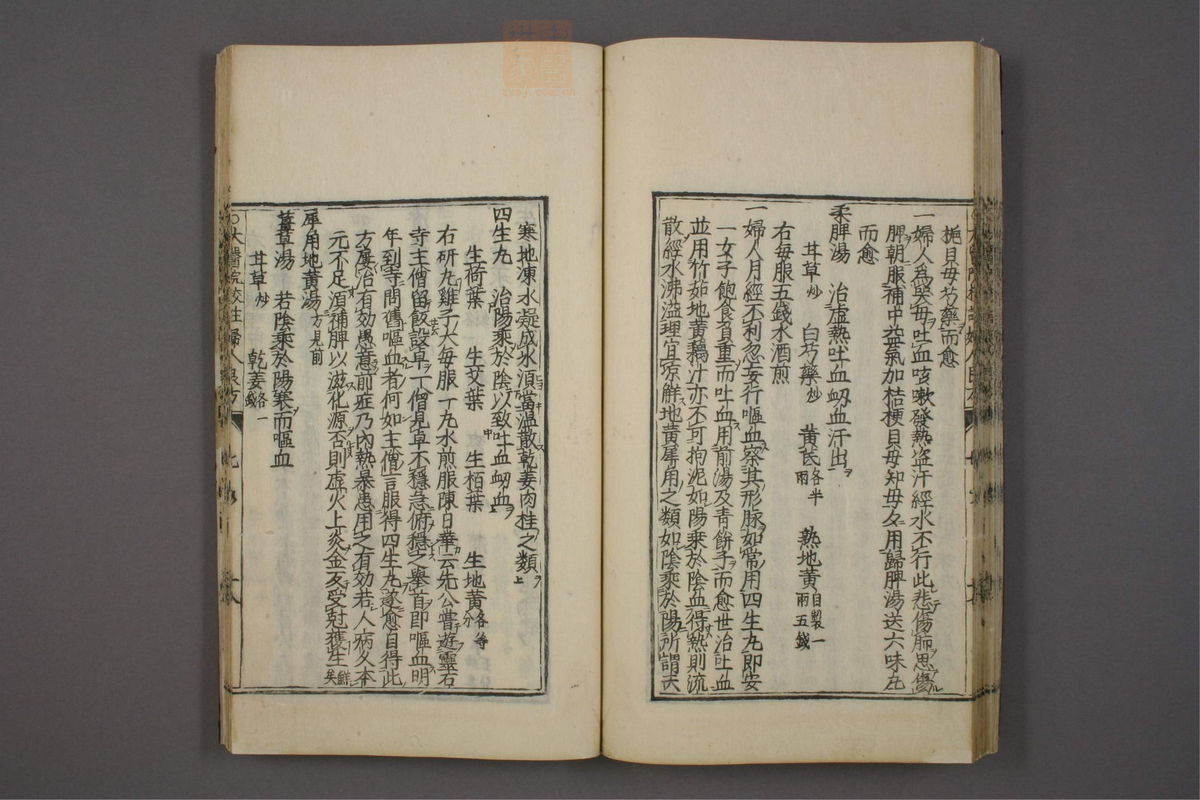 梔貝母芍藥而愈
一婦人為哭母吐血咳嗽發熱盗汗經水不行此悲傷肺思傷
脾朝服補中益氣加桔梗貝母知母夕用歸脾湯送六味丸
而愈
柔脾湯 治虛熱吐血衂血汗出
甘草炒 白芍藥炒 黄芪各半兩 熟地黄自製一兩五錢
右每服五錢水酒煎
一婦人月經不利忽妄行嘔血察其形脉如常用四生丸即安
一女子飽食負重而吐血用前湯及青餅子而愈世治吐血
並用竹茹地黄藕汁亦不可拘泥如陽乘於陰血得熱則流
散經水沸溢理宜凉解地黄犀用之類如陰乘於陽所謂天
寒地凍水凝成水須當温散乾姜肉桂之類
四生丸 治陽乘於陰以致吐血衂血
生荷葉 生艾葉 生栢葉 生地黄各等分
右研丸雞子大每服丁丸水煎服陳日華云先公嘗遊靈石
寺主僧留飯設卓丁僧見卓不穩急俯穩之舉首即嘔血明
年到寺問舊嘔血者何如主僧言服得四生丸遂愈自得此
方屢治有効愚意前症乃内熱暴患用之有効若人病久本
元不足須補脾以滋化源否則虛火上炎金反受尅獲生鮮矣
犀角地黄湯方見前
甘草湯 若陰乘於陽寒而嘔血
甘草炒 乾姜各一錢
○太醫院校注婦人良方